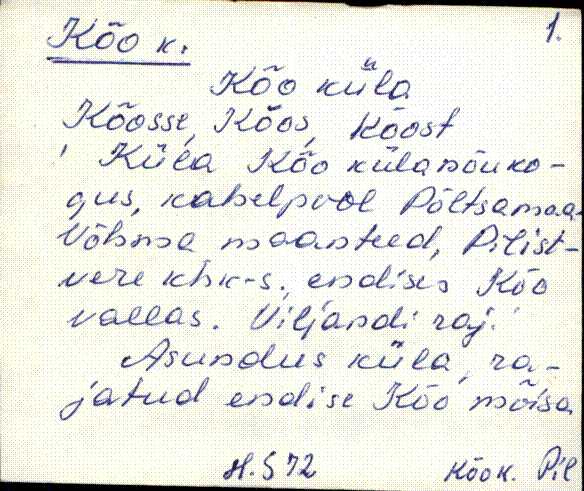 Kõo k. 1.
Kõo küla
Kõosse, Kõos, Kõost
Küla Kõo külanõuko-
gus, kahelpool Põltsamaa-
Võhma maanteed, Pilist-
vere khk-s, endises Kõo
vallas. Viljandi raj.
Asundus küla, ra-
jatud endise Kõo mõisa
H. S 72 Kõo k. Pil